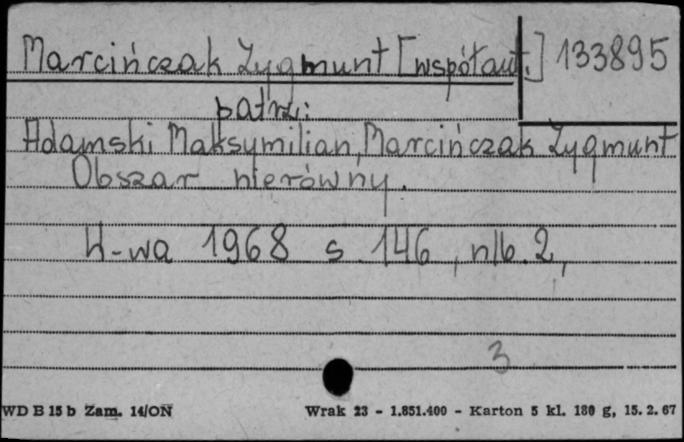 Marcińczak Zygmunt [współaut.] 133895
patrz:
Adamski Maksymilian, Marcińczak Zygmunt
Obszar nierówny.
W-wa 1968 s. 146, nlb. 2,
3
WD B 15 b Zam. 14/ON Wrak 23 - 1.851.400 - Karton 5 kl. 180 g, 15. 2. 67